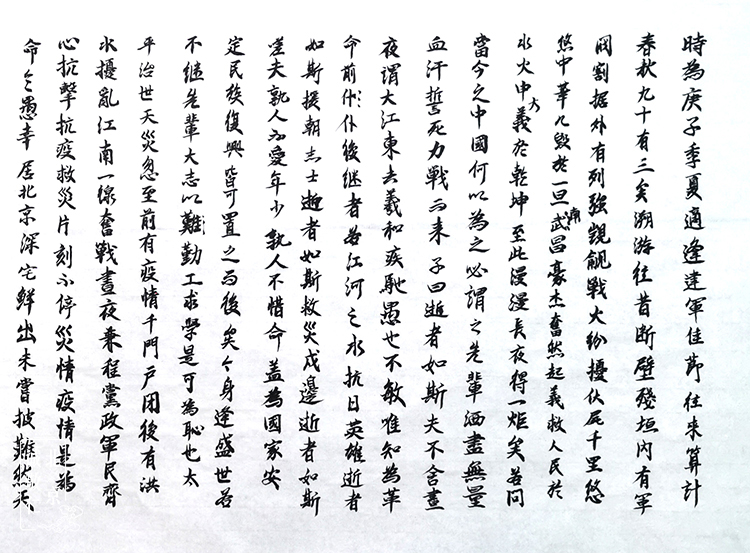 時為庚子季夏適逢建軍佳節往來算計
春秋九十有三矣溯游往昔断壁殘垣内有軍
閥割据外有列強覬覦戰火紛擾伏尸千里悠
悠中華几毀於一旦武昌南豪杰奮然起義救人民於
水火中大義於乾坤至此漫漫長夜得一炬矣若问
當今之中國何以為之必謂之先輩洒盡無量
血汗誓死力戰而来子曰逝者如斯夫不舍晝
夜谓大江東去羲和疾馳愚也不敏唯知為革
命前仆仆後继者若江河之水抗日英雄逝者
如斯援朝志士逝者如斯救災戍邊逝者如斯
嗟夫孰人不愛年少孰人不惜命盖為國家安
定民族復興皆可置之而後矣今身逢盛世若
不继先輩大志以難勤工求學是可為恥也太
平治世天災忽至前有疫情千門户閉後有洪
水擾亂江南一線奮戰晝夜兼程黨政軍民齊
心抗擊抗疫救災片刻不停災情疫情是為
命令愚幸居北京深宅鮮出未嘗披難然天